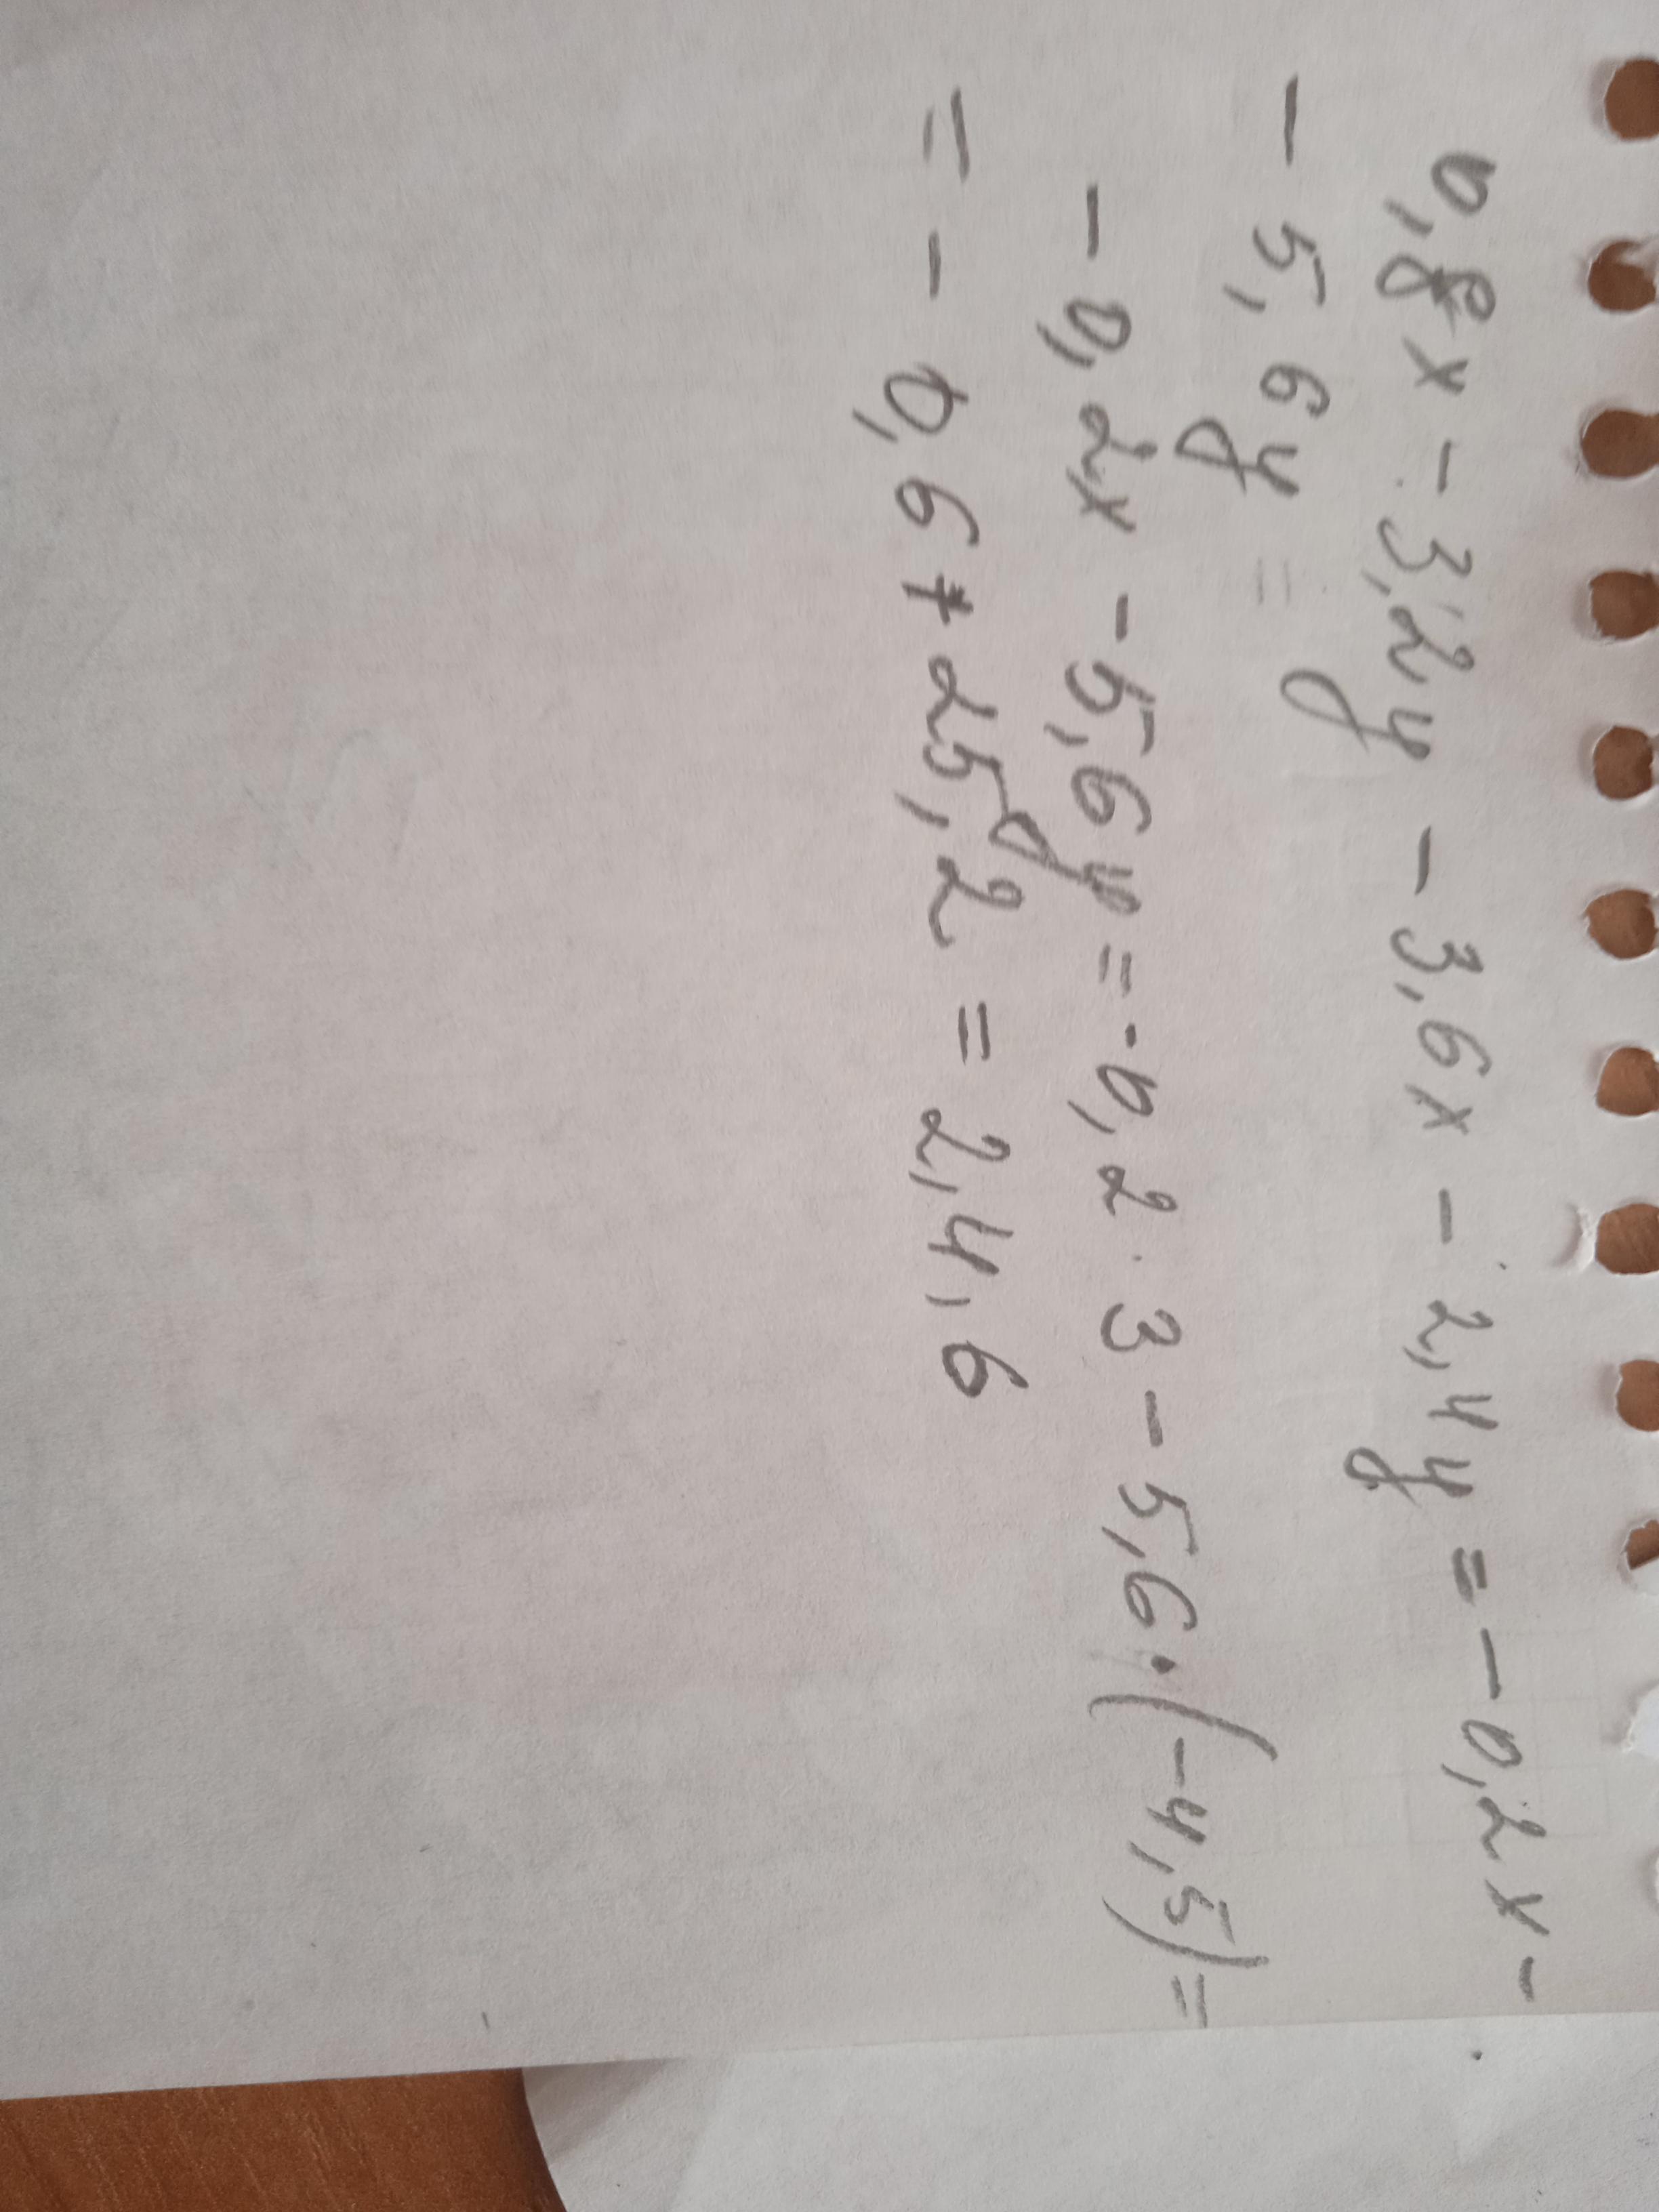 0,8x - 3,2y - 3,6x - 2,4y = - 0,2x -
- 5,6y =
- 0,2x - 5,6y = - 0,2 · 3 - 5,6 · (-4,5) =
= - 0,6 + 25,2 = 2,4,6